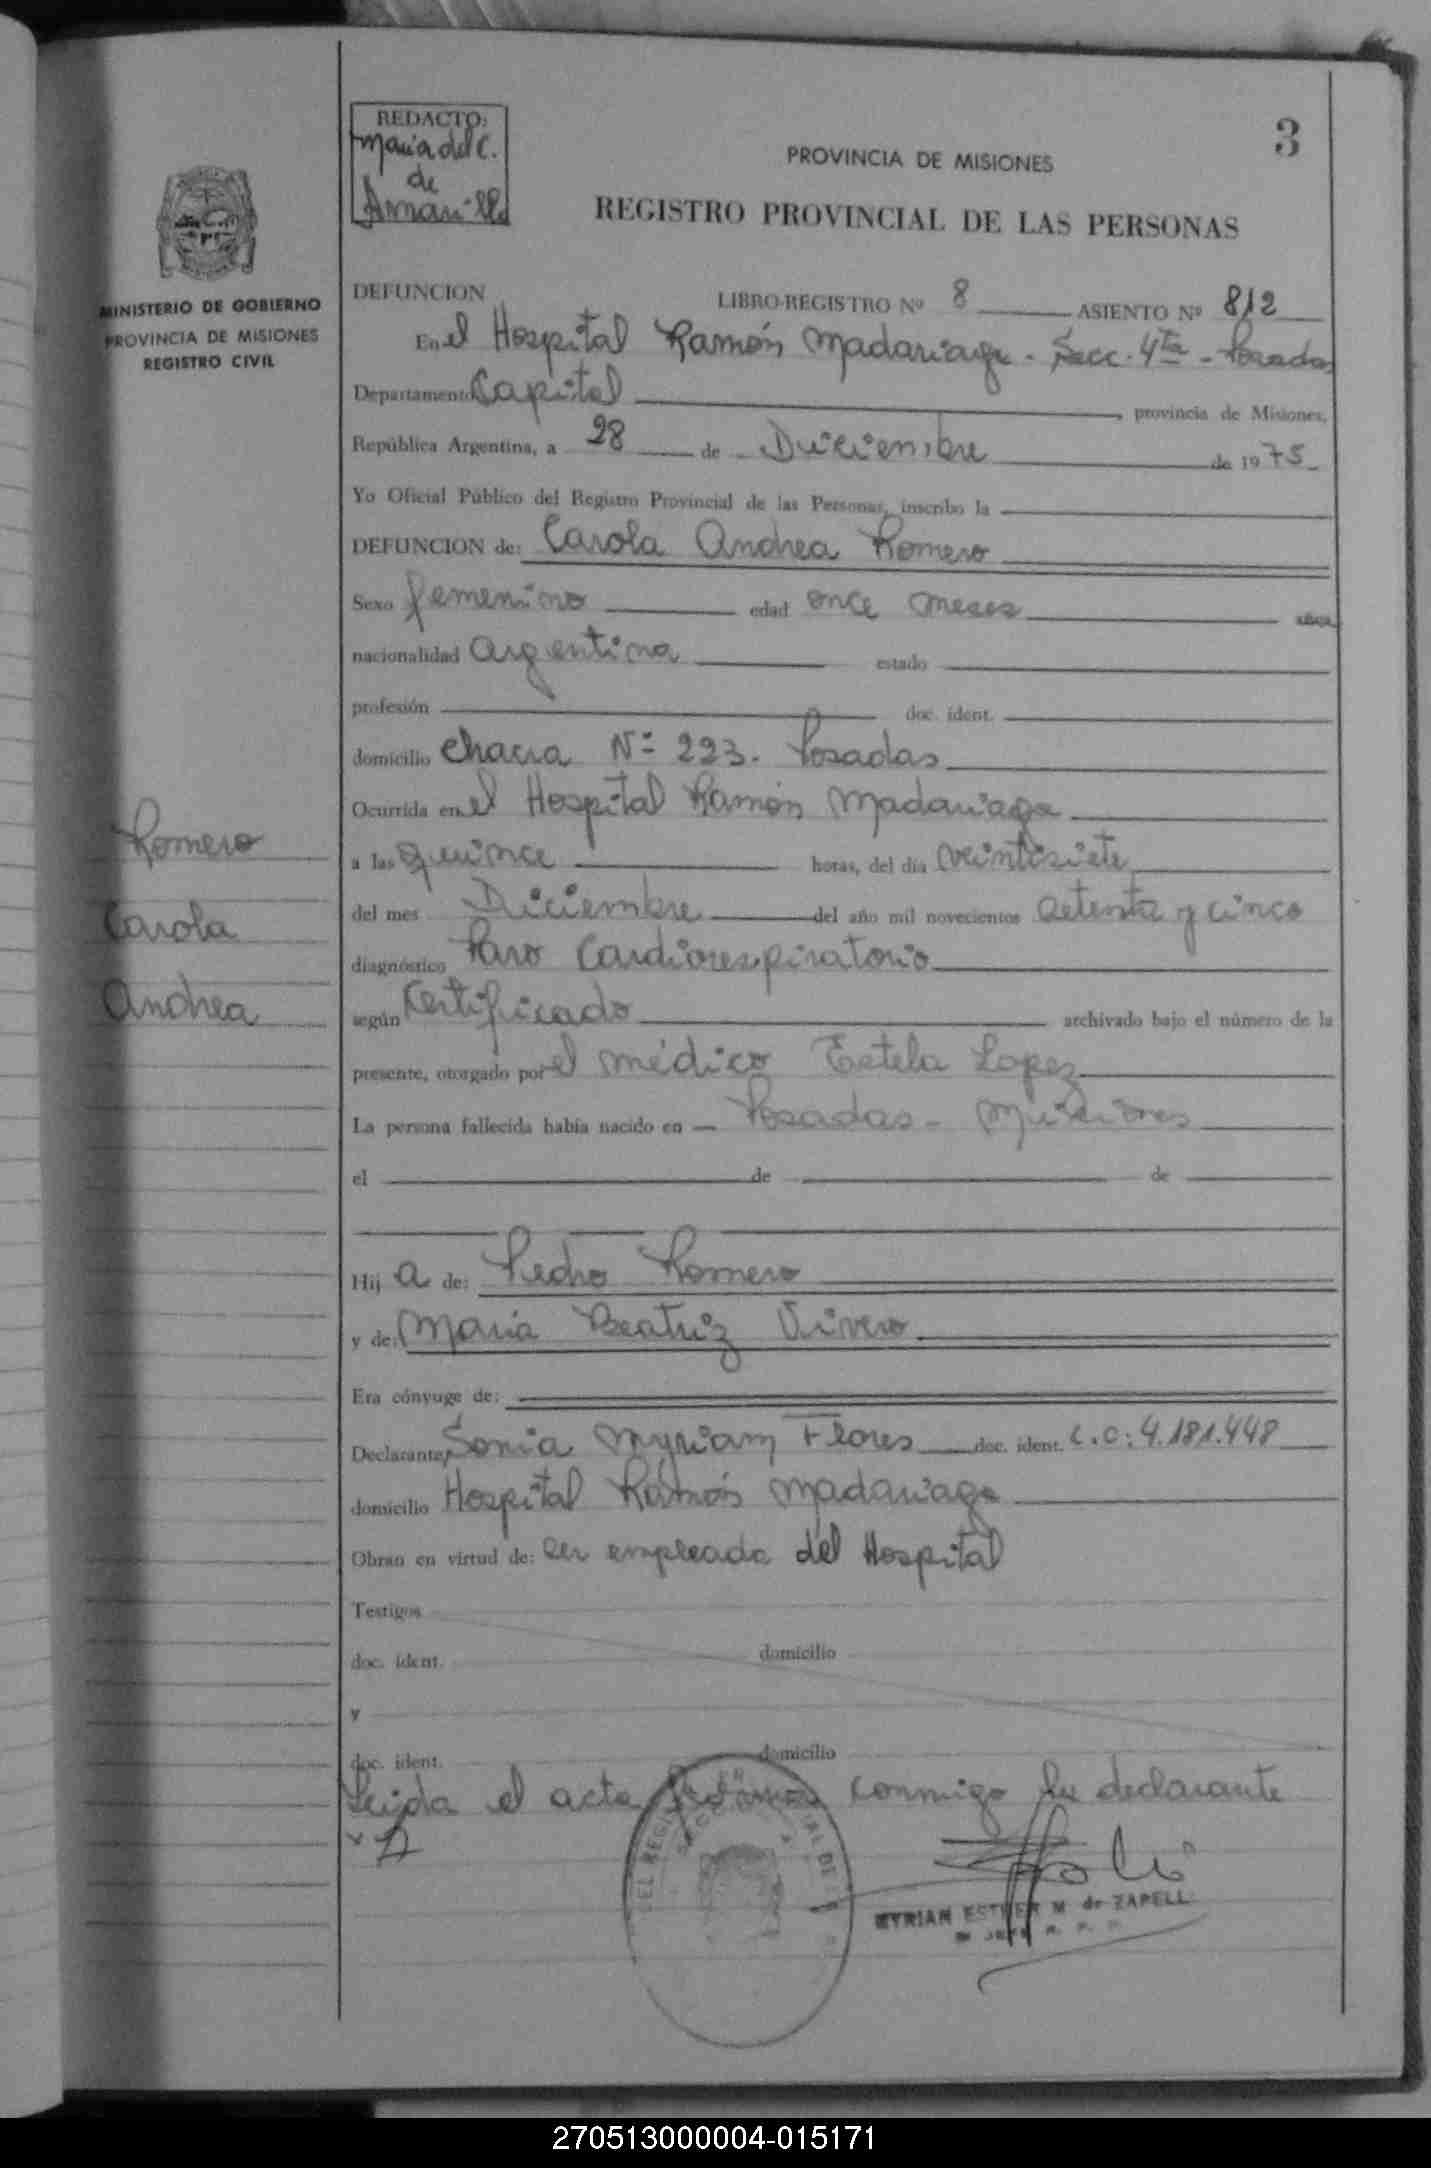 3
REDACTO:
Maria del C.
de
Amarilla
PROVINCIA DE MISIONES
REGISTRO PROVINCIAL DE LAS PERSONAS
MINISTERIO DE GOBIERNO
PROVINCIA DE MISIONES
REGISTRO CIVIL
DEFUNCION LIBRO-REGISTRO Nº 8 ASIENTO Nº 812
En el Hospital Ramón Madariaga - Secc. 4ta - Posadas
Departamento Capital, provincia de Misiones,
República Argentina, a 28 de Diciembre de 1975
Yo Oficial Público del Registro Provincial de las Personas, inscribo la
DEFUNCION de: Carola Andrea Romero
Sexo femenino edad once meses años
nacionalidad argentina estado
profesión doc. ident.
domicilio Chacra Nº 223. Posadas
Ocurrida en el Hospital Ramón Madariaga
a las quince horas, del día veintisiete
del mes Diciembre del año mil novecientos setenta y cinco
diagnóstico Paro Cardiorespiratorio
según Certificado archivado bajo el número de la
presente, otorgado por el médico Estela Lopez
La persona fallecida había nacido en Posadas - Misiones
el de de
Hij a de: Pedro Romero
y de: Maria Beatriz Vivero
Era cónyuge de:
Declarante Sonia Myriam Flores doc. ident. L.C: 4.181.448
domicilio Hospital Ramón Madariaga
Obran en virtud de: ser empleada del Hospital
Testigos
doc. ident. domicilio
y
doc. ident. domicilio
Leida el acta firma conmigo la declarante
MYRIAN ESTHER M de ZAPELLI
Romero
Carola
Andrea
270513000004-015171